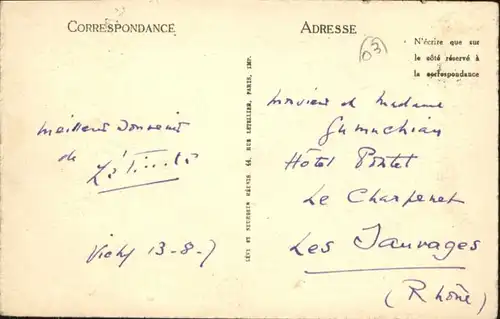 CORRESPONDANCE
ADRESSE
N'écrire que sur
le côté réservé à
la correspondance
03
Meilleurs Souvenirs
de
Vichy 13-8-7
LÉVY ET NEURDEIN RÉUNIS, 44, RUE LETELLIER, PARIS, IMP.
Monsieur et Madame
Gumuchian
Hôtel Pontet
Le Charpenet
Les Sauvages
(Rhône)